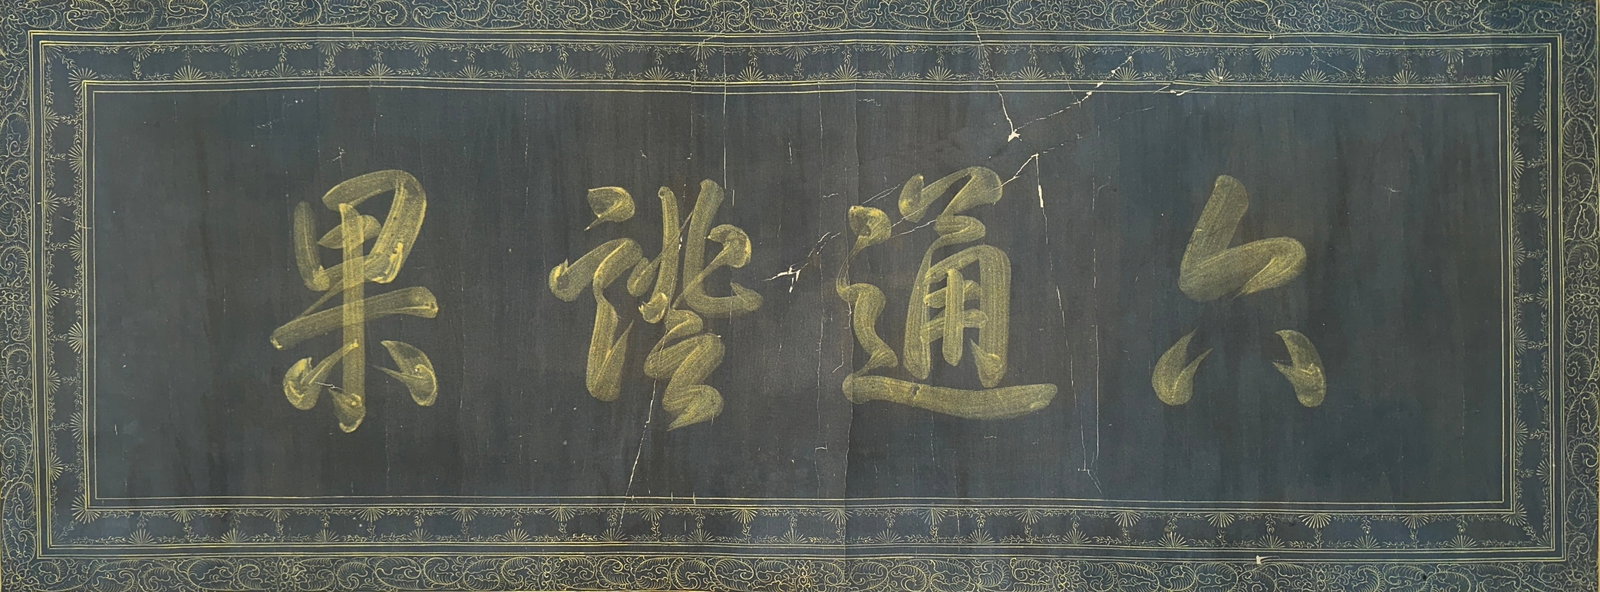 六通證果